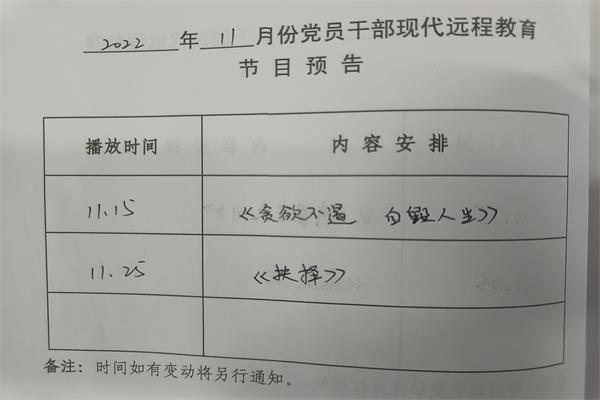 2022 年 11 月份党员干部现代远程教育
节目预告
播放时间 内容安排
11.15 《贪欲不遏 自毁人生》
11.25 《抉择》
备注：时间如有变动将另行通知。